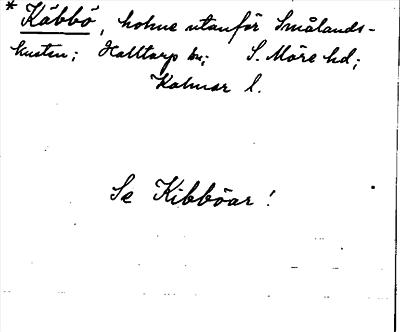 * Käbbö, holme utanför Smålands-
kusten; Halltorp sn; S. Möre hd;
Kalmar l.
Se Kibböar!